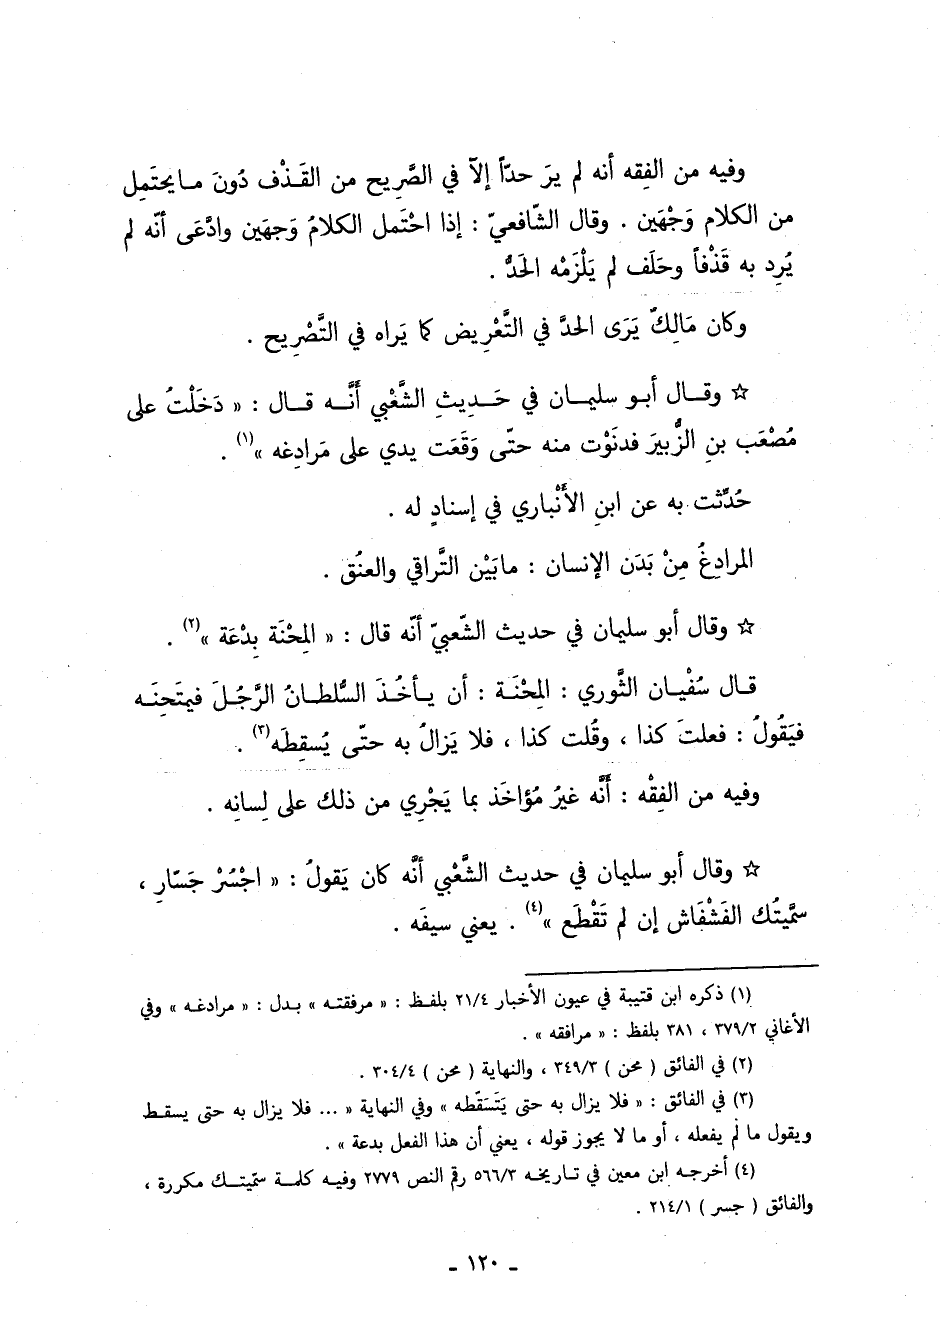 وفيه من الفِقه أنه لم يرَ حدّاً إلاّ في الصَّرِيح من القَذْف دُونَ مايحتَمِل
من الكلام وَجْهَين . وقال الشّافعيّ : إذا احْتَمل الكلامُ وَجهَين وادَّعَى أنّه لم
يُرِد به قَذْفاً وحَلَف لم يَلْزَمْه الحَدُّ .
وكان مَالِكٌ يَرَى الحدَّ في التَّعْرِيض كما يَراه في التَّصْرِيح .
☆ وقال أبو سليمان في حَدِيثِ الشَّعْبي أَنَّه قال : « دَخَلْتُ على
مُصْعَب بنِ الزُّبيرَ فدنَوْت منه حتّى وَقَعَت يدي على مَرادِغه »(١) .
حُدِّثت به عن ابنِ الأَنْباري في إسنادٍ له .
المرادِغُ مِنْ بَدَن الإنسان : مابَيْن التَّراقي والعنُق .
☆ وقال أبو سليمان في حديث الشّعبيّ أنّه قال : « المِحْنَة بِدْعَة »(٢) .
قال سُفْيان الثَّوري : المِحْنَة : أن يأخُذَ السُّلطانُ الرَّجُلَ فيمتَحِنَه
فيَقُولُ : فعلتَ كذا ، وقُلت كذا ، فلا يَزالُ به حتّى يُسقِطَه(٣) .
وفيه من الفِقْه : أَنَّه غيرُ مُؤاخَذ بما يَجْرِي من ذلك على لِسانِه .
☆ وقال أبو سليمان في حديث الشَّعْبي أنَّه كان يَقولُ : « اجْسُرْ جَسّارِ ،
سَمَّيتُك الفَشْفَاش إن لم تَقْطَع »(٤) . يعني سيفَه .
(١) ذكره ابن قتيبة في عيون الأخبار ٢١/٤ بلفظ : « مرفقته » بدل : « مرادغه » وفي
الأغاني ٣٧٩/٢ ، ٣٨١ بلفظ : « مرافقه » .
(٢) في الفائق ( محن ) ٣٤٩/٣ ، والنهاية ( محن ) ٣٠٤/٤ .
(٣) في الفائق : « فلا يزال به حتى يَتَسَقّطه » وفي النهاية « ... فلا يزال به حتى يسقط
ويقول ما لم يفعله ، أو ما لا يجوز قوله ، يعني أن هذا الفعل بدعة » .
(٤) أخرجه ابن معين في تاريخه ٥٦٦/٣ رقم النص ٢٧٧٩ وفيه كلمة سمّيتك مكررة ،
والفائق ( جسر ) ٢١٤/١ .
- ١٢٠ -